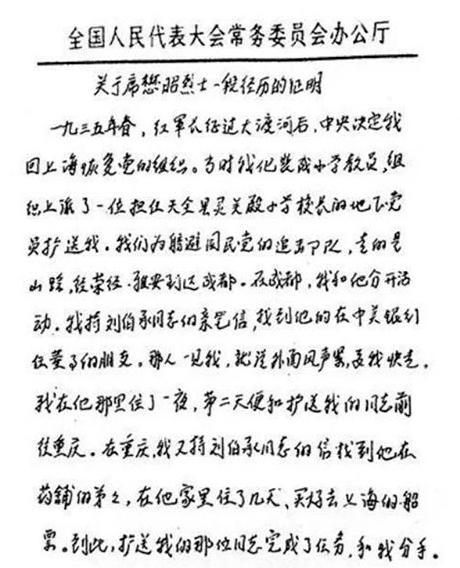 全国人民代表大会常务委员会办公厅
关于席懋昭烈士一段经历的证明
一九三五年春，红军长征过大渡河后，中央决定我
回上海恢复党的组织。当时我化装成小学教员，组
织上派了一位担任天全县灵关殿小学校长的地下党
员护送我。我们为躲避国民党的追击部队，走的是
山路，经荥经、雅安到达成都。在成都，我和他分开活
动。我持刘伯承同志的亲笔信，找到他的在中美银行
任董事的朋友。那人一见我，就说外面风声紧，要我快走。
我在他那里住了一夜，第二天便和护送我的同志前
往重庆。在重庆，我又持刘伯承同志的信找到他在
药铺的弟弟，在他家里住了几天、买好去上海的船
票。到此，护送我的那位同志完成了任务，和我分手。